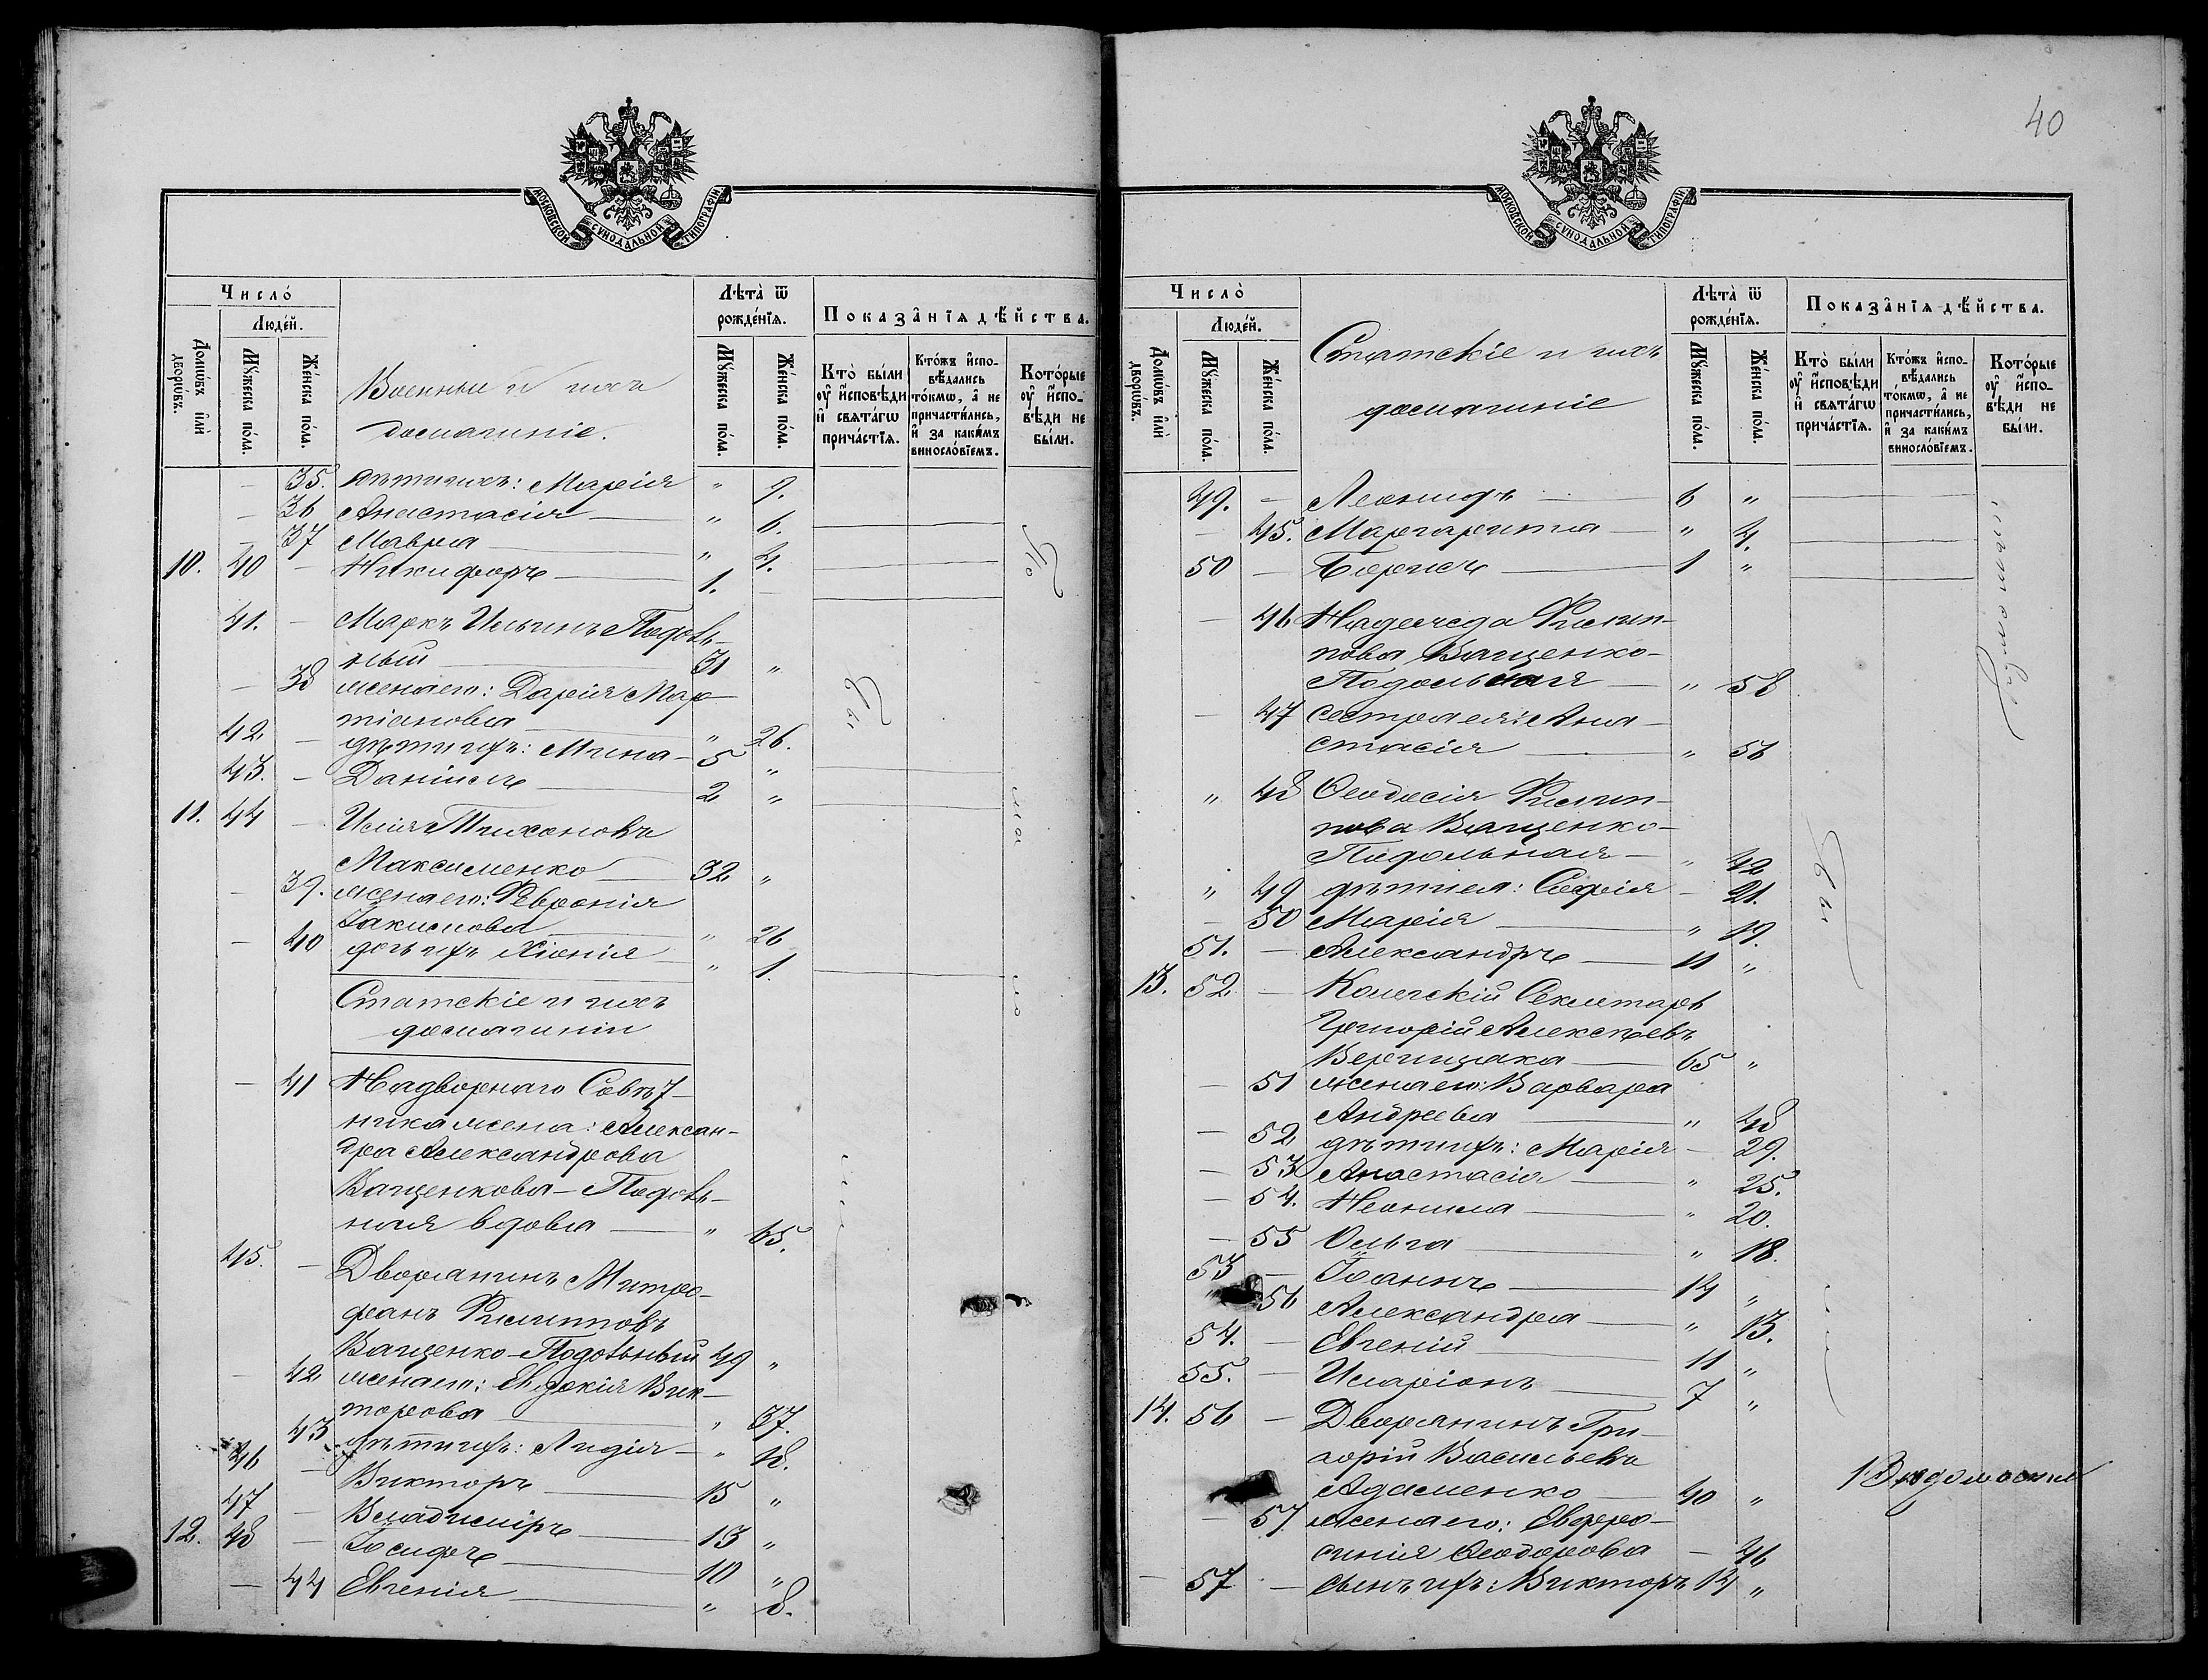 40
МОСКОВСКОЙ СѴНОДАЛЬНОЙ ТИПОГРАФІИ
Число̀
Людéй.
Домѡ́въ и҆лѝ дворѡ́въ.
Мꙋ́жеска по́ла.
Же́нска по́ла.
Военныи и ихъ
домашніе.
Лѣта̀ ѿ рожде́нїѧ.
Мꙋ́жеска по́ла.
Же́нска по́ла.
Показа̑нїѧ дѣ́йства.
Кто̀ бы́ли оу҆ и҆сповѣди и҆ свѧта́гѡ прича́стїѧ.
Кто́жъ и҆спо-вѣ́дались то́кмѡ, а҆ не причасти́лись, и҆ за каки́мъ винословїемъ.
Кото́рые оу҆ и҆спо-вѣди не бы́ли.
— 35. дѣти ихъ: Марія " 9.
— 36 Анастасія — " 6.
— 37 Мавра — " 4.
10. 40 — Никифоръ — 1. —
41. — Маркъ Ильинъ Подоль-
ный — 31 "
— 38 жена его: Дарія Мар-
тіанова — " 26.
42 — дѣти ихъ: Мина — 5 "
43. — Даніилъ — 2 "
11. 44 — Илія Тихоновъ
Максименко — 32 "
— 39. жена его: Февронія
Іакимова — " 26
— 40 дочь ихъ Хіонія — " 1.
Статскіе и ихъ
домашніи
— 41 Надворнаго Совѣт-
ника жена: Алексан-
дра Александрова
Ващенкова-Подоль-
ная вдова — " 65.
45. — Дворянинъ Митро-
фанъ Филипповъ
Ващенко-Подольный 49 "
— 42 жена его: Евдокія Вик-
торова — " 37.
43 дѣти ихъ: Лидія — " 18.
46 — Викторъ — 15 "
47 — Владиміръ — 13 "
12. 48 — Іосифъ — 10 "
— 44 Евгенія — " 8.
МОСКОВСКОЙ СѴНОДАЛЬНОЙ ТИПОГРАФІИ
Число̀
Людéй.
Домѡ́въ и҆лѝ дворѡ́въ.
Мꙋ́жеска по́ла.
Же́нска по́ла.
Статскіе и ихъ
домашніе
Лѣта̀ ѿ рожде́нїѧ.
Мꙋ́жеска по́ла.
Же́нска по́ла.
Показа̑нїѧ дѣ́йства.
Кто̀ бы́ли оу҆ и҆сповѣди и҆ свѧта́гѡ прича́стїѧ.
Кто́жъ и҆спо-вѣ́дались то́кмѡ, а҆ не причасти́лись, и҆ за каки́мъ винословїемъ.
Кото́рые оу҆ и҆спо-вѣди не бы́ли.
49. — Леонидъ — 6 "
— 45. Маргарита — " 4.
50 — Борисъ — 1 "
— 46 Надежда Филип-
пова Ващенко-
Подольная — " 58
— 47 сестра ея: Ана-
стасія — " 56
" 48 Ѳеодосія Филип-
пова Ващенко-
Подольная — " 42
" 49 дѣти ея: Софія — 21.
— 50 Марія — " 19.
51. — Александръ — 11 "
13. 52. — Колегскій Секлетарь
Григорій Алексѣевъ
Верницака — 65 "
— 51 жена его: Варвара
Андреева — " 48
— 52 дѣти ихъ: Марія — 29.
— 53 Анастасія — " 25.
— 54. Неонила — " 20.
— 55 Ольга — " 18.
53 — Іоаннъ — 14 "
56 Александра — " 13.
54. — Евгеній — 11 "
55. — Иларіонъ — 7 "
14. 56 — Дворянинъ Гри-
горій Васильевъ
Адаменко — 40 "
— 57. жена его: Евфро-
синія Ѳеодорова — 46
— 57 — сынъ ихъ: Викторъ 14 "